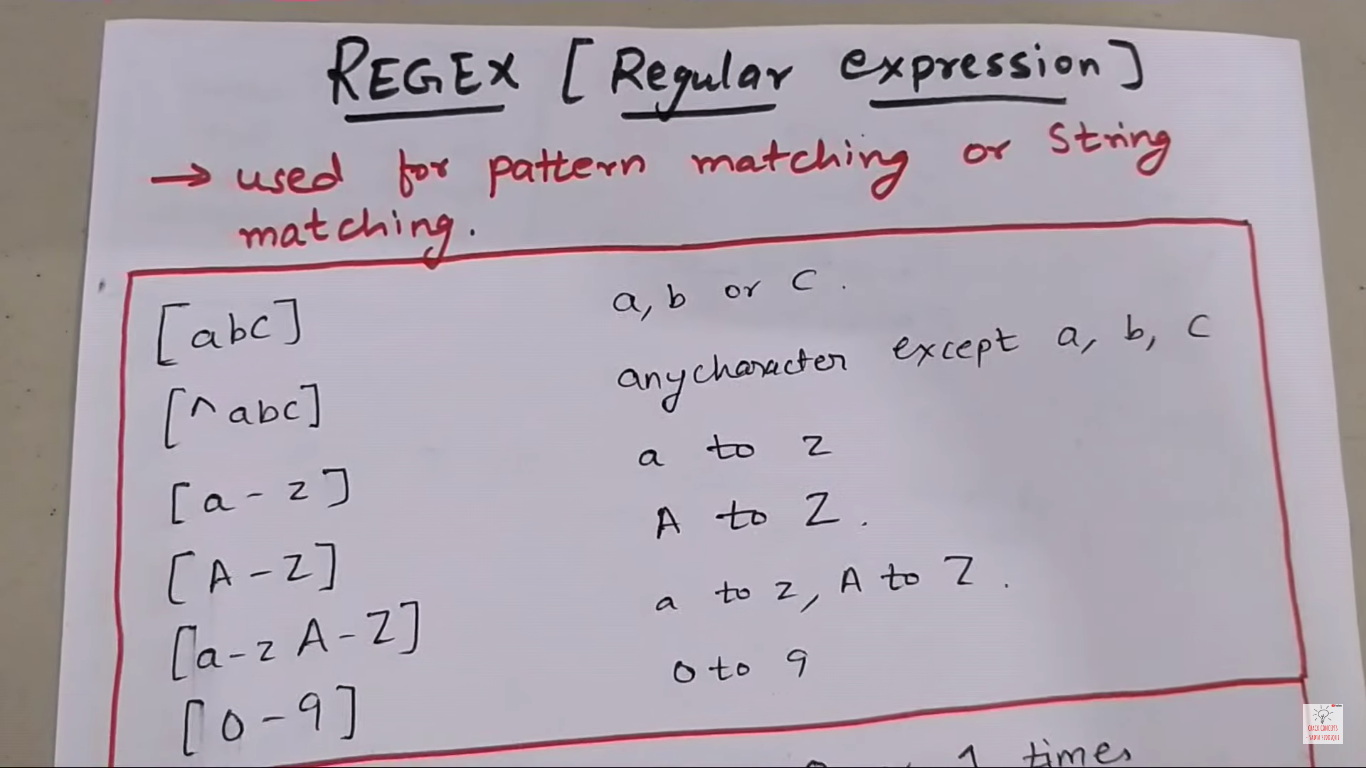 REGEX [Regular expression]
→ used for pattern matching or String
matching.
[abc] a, b or c.
[^abc] anycharacter except a, b, c
[a-z] a to z
[A-Z] A to Z.
[a-z A-Z] a to z, A to Z.
[0-9] 0 to 9
1 times